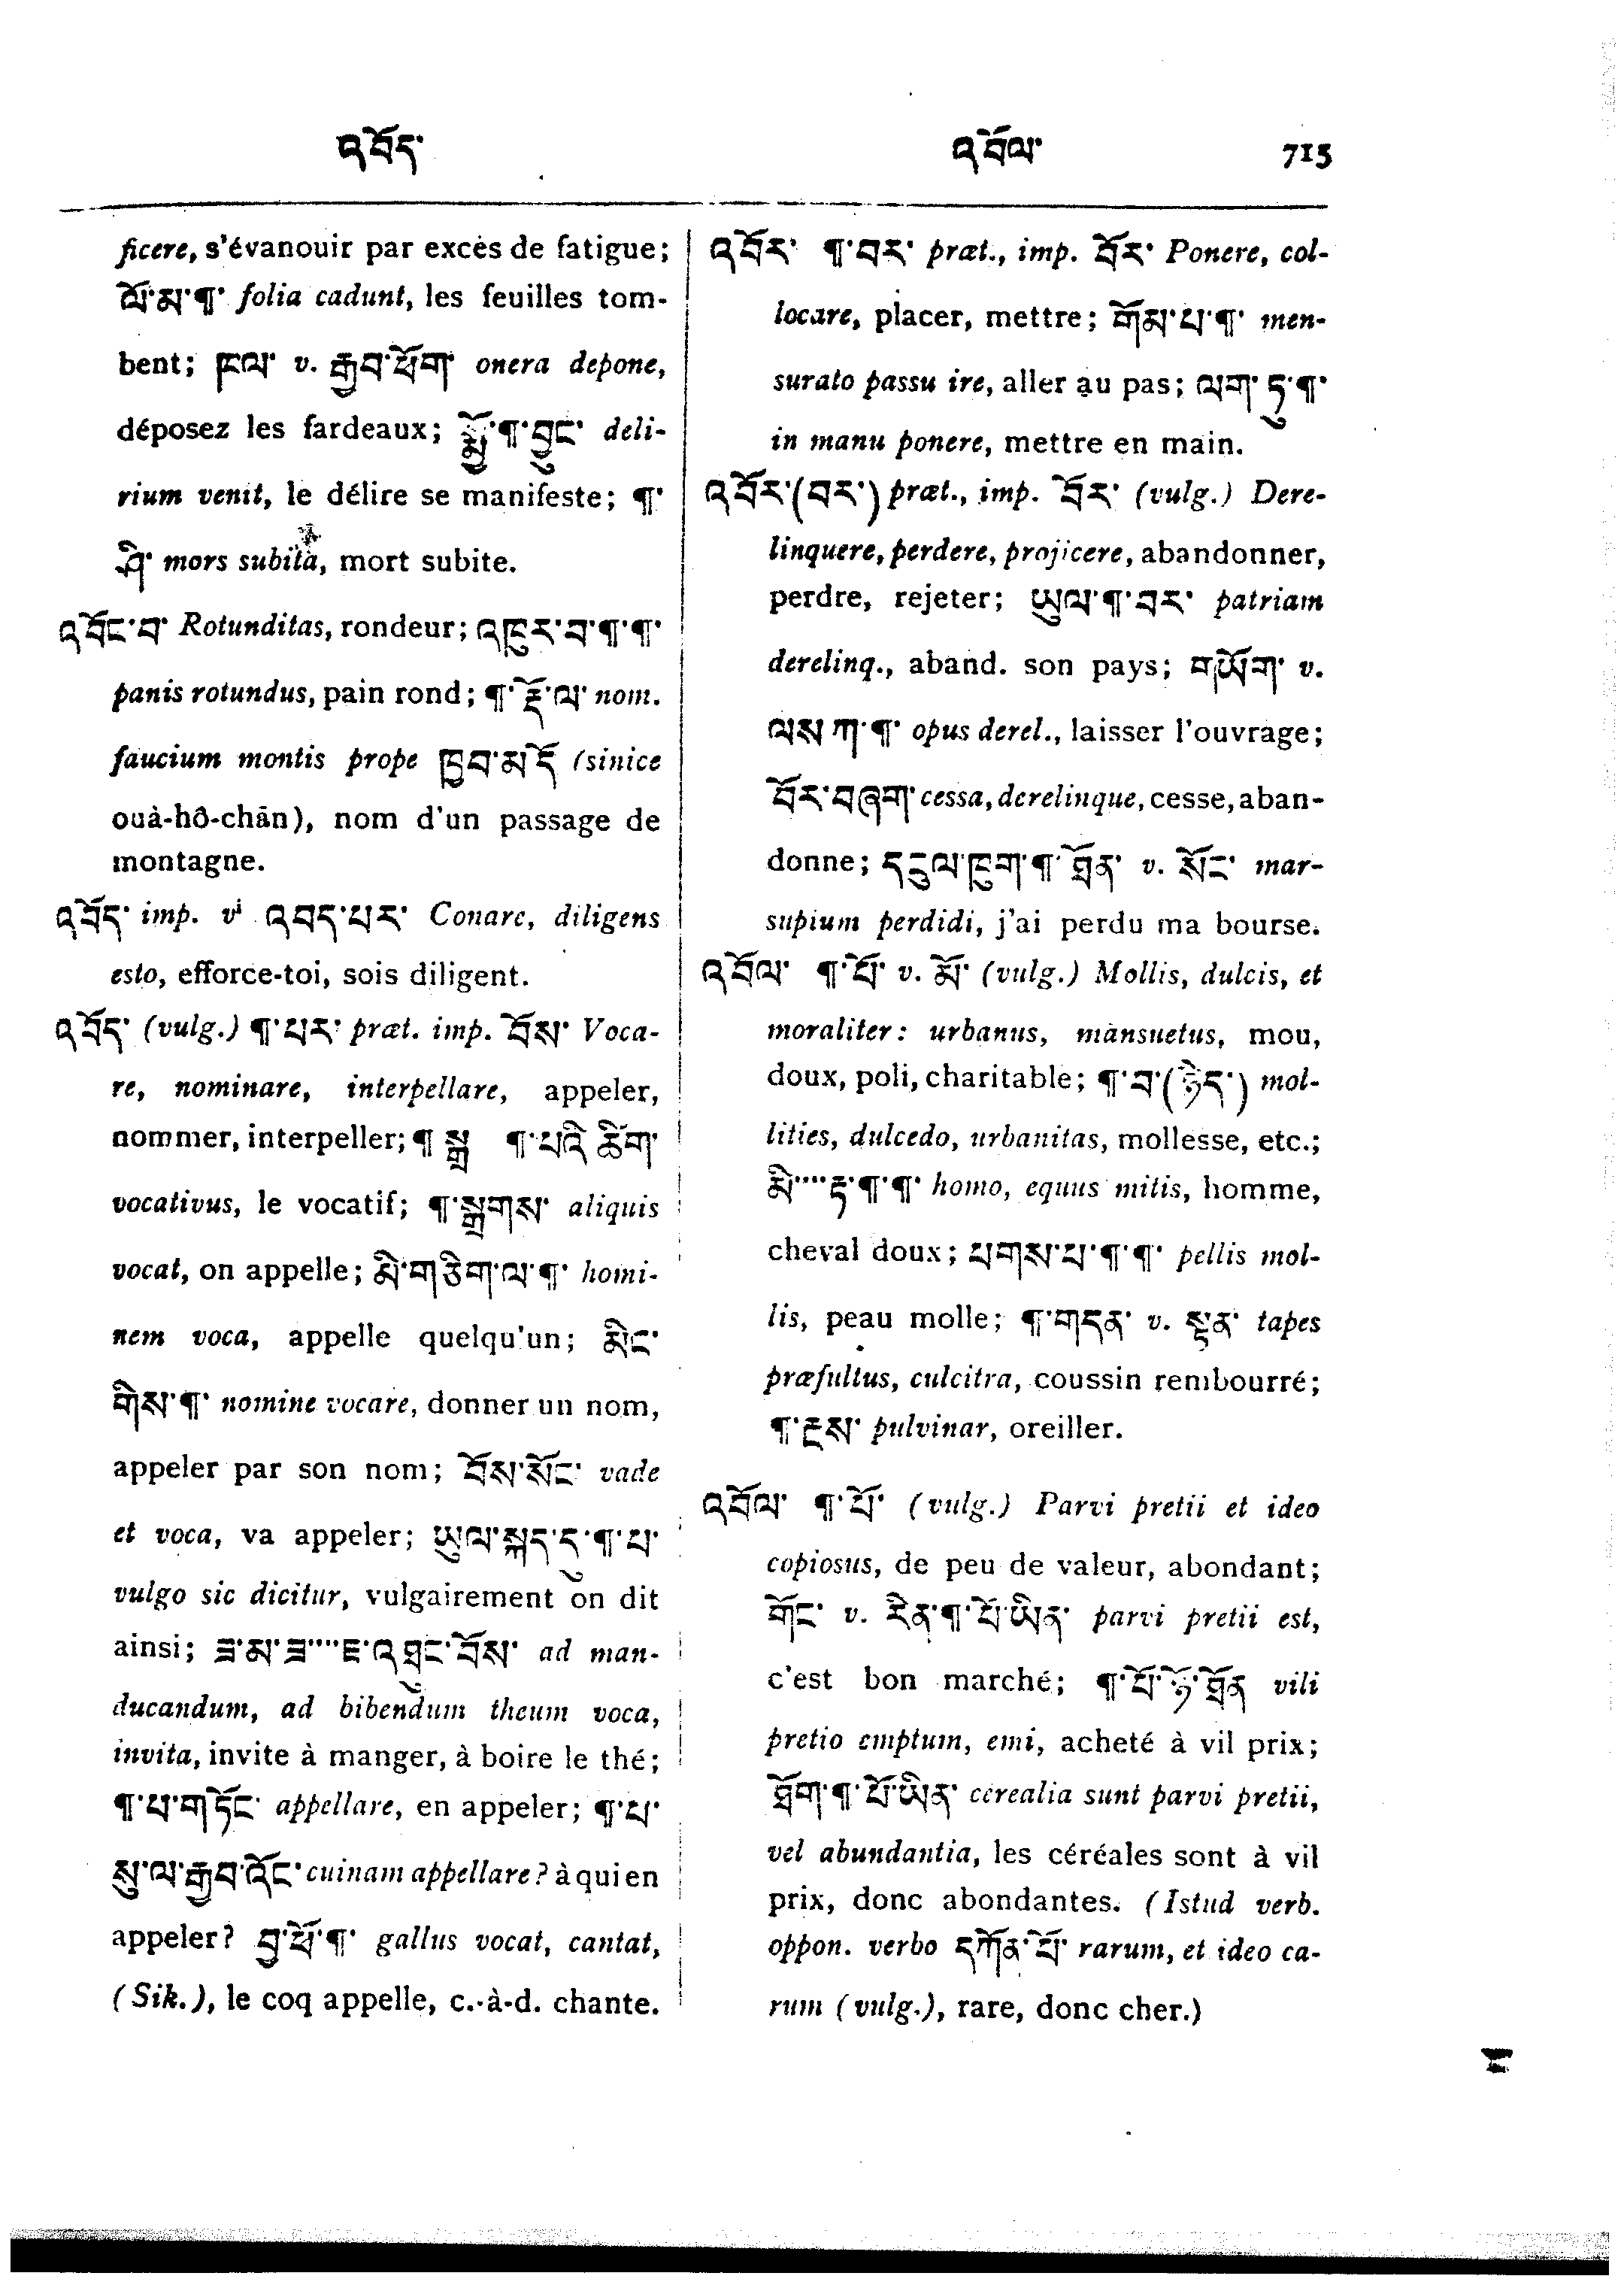 འབོད་ འབོལ་ 715
ficere, s'évanouir par excès de fatigue;
ལོ་མ་¶་ folia cadunt, les feuilles tom-
bent; ངལ་ v. རྒྱབ་ཕོག་ onera depone,
déposez les fardeaux; སྨྱོ་¶་བྱུང་ deli-
rium venit, le délire se manifeste; ¶་
ཤི་ mors subita, mort subite.
འབོང་བ་ Rotunditas, rondeur; འཁུར་བ་¶་¶་
panis rotundus, pain rond; ¶་རྡོ་ལ་ nom.
faucium montis prope ཁྱབ་མདོ (sinice
ouà-hô-chān), nom d'un passage de
montagne.
འབོད་ imp. v. འབད་པར་ Conare, diligens
esto, efforce-toi, sois diligent.
འབོད་ (vulg.) ¶་པར་ præt. imp. བོས་ Voca-
re, nominare, interpellare, appeler,
nommer, interpeller; ¶ སྒྲ ¶་པའི་ཚིག་
vocativus, le vocatif; ¶་སྒྲགས་ aliquis
vocat, on appelle; མི་གཅིག་ལ་¶་ homi-
nem voca, appelle quelqu'un; མིང་
གིས་¶་ nomine vocare, donner un nom,
appeler par son nom; བོས་སོང་ vade
et voca, va appeler; ཡུལ་སྐད་དུ་¶་པ་
vulgo sic dicitur, vulgairement on dit
ainsi; ཟ་མ་ཟ་་་་ཇ་འཐུང་བོས་ ad man-
ducandum, ad bibendum theum voca,
invita, invite à manger, à boire le thé;
¶་པ་གཏོང་ appellare, en appeler; ¶་པ་
སུ་ལ་རྒྱབ་འོང་ cuinam appellare? à qui en
appeler? བྱ་ཕོ་¶་ gallus vocat, cantat,
(Sik.), le coq appelle, c.-à-d. chante.
འབོར་ ¶་བར་ præt., imp. བོར་ Ponere, col-
locare, placer, mettre; གོམ་པ་¶་ men-
surato passu ire, aller au pas; ལག་ཏུ་¶་
in manu ponere, mettre en main.
འབོར་(བར་) præt., imp. བོར་ (vulg.) Dere-
linquere, perdere, projicere, abandonner,
perdre, rejeter; ཡུལ་¶་བར་ patriam
derelinq., aband. son pays; གཡོག་ v.
ལས་ཀ་¶་ opus derel., laisser l'ouvrage;
བོར་བཞག་ cessa, derelinque, cesse, aban-
donne; དངུལ་ཁུག་¶་ཐོན་ v. སོང་ mar-
supium perdidi, j'ai perdu ma bourse.
འབོལ་ ¶་པོ་ v. མོ་ (vulg.) Mollis, dulcis, et
moraliter: urbanus, mansuetus, mou,
doux, poli, charitable; ¶་བ་(ཉིད་) mol-
lities, dulcedo, urbanitas, mollesse, etc.;
མི་་་་རྟ་¶་¶་ homo, equus mitis, homme,
cheval doux; པགས་པ་¶་¶་ pellis mol-
lis, peau molle; ¶་གདན་ v. སྟན་ tapes
præfultus, culcitra, coussin rembourré;
¶་རྔས་ pulvinar, oreiller.
འབོལ་ ¶་པོ་ (vulg.) Parvi pretii et ideo
copiosus, de peu de valeur, abondant;
གོང་ v. རིན་¶་པོ་ཡིན་ parvi pretii est,
c'est bon marché; ¶་པོ་ཉོ་ཐོན vili
pretio emptum, emi, acheté à vil prix;
ཐོག་¶་པོ་ཡིན་ cerealia sunt parvi pretii,
vel abundantia, les céréales sont à vil
prix, donc abondantes. (Istud verb.
oppon. verbo དཀོན་པོ་ rarum, et ideo ca-
rum (vulg.), rare, donc cher.)